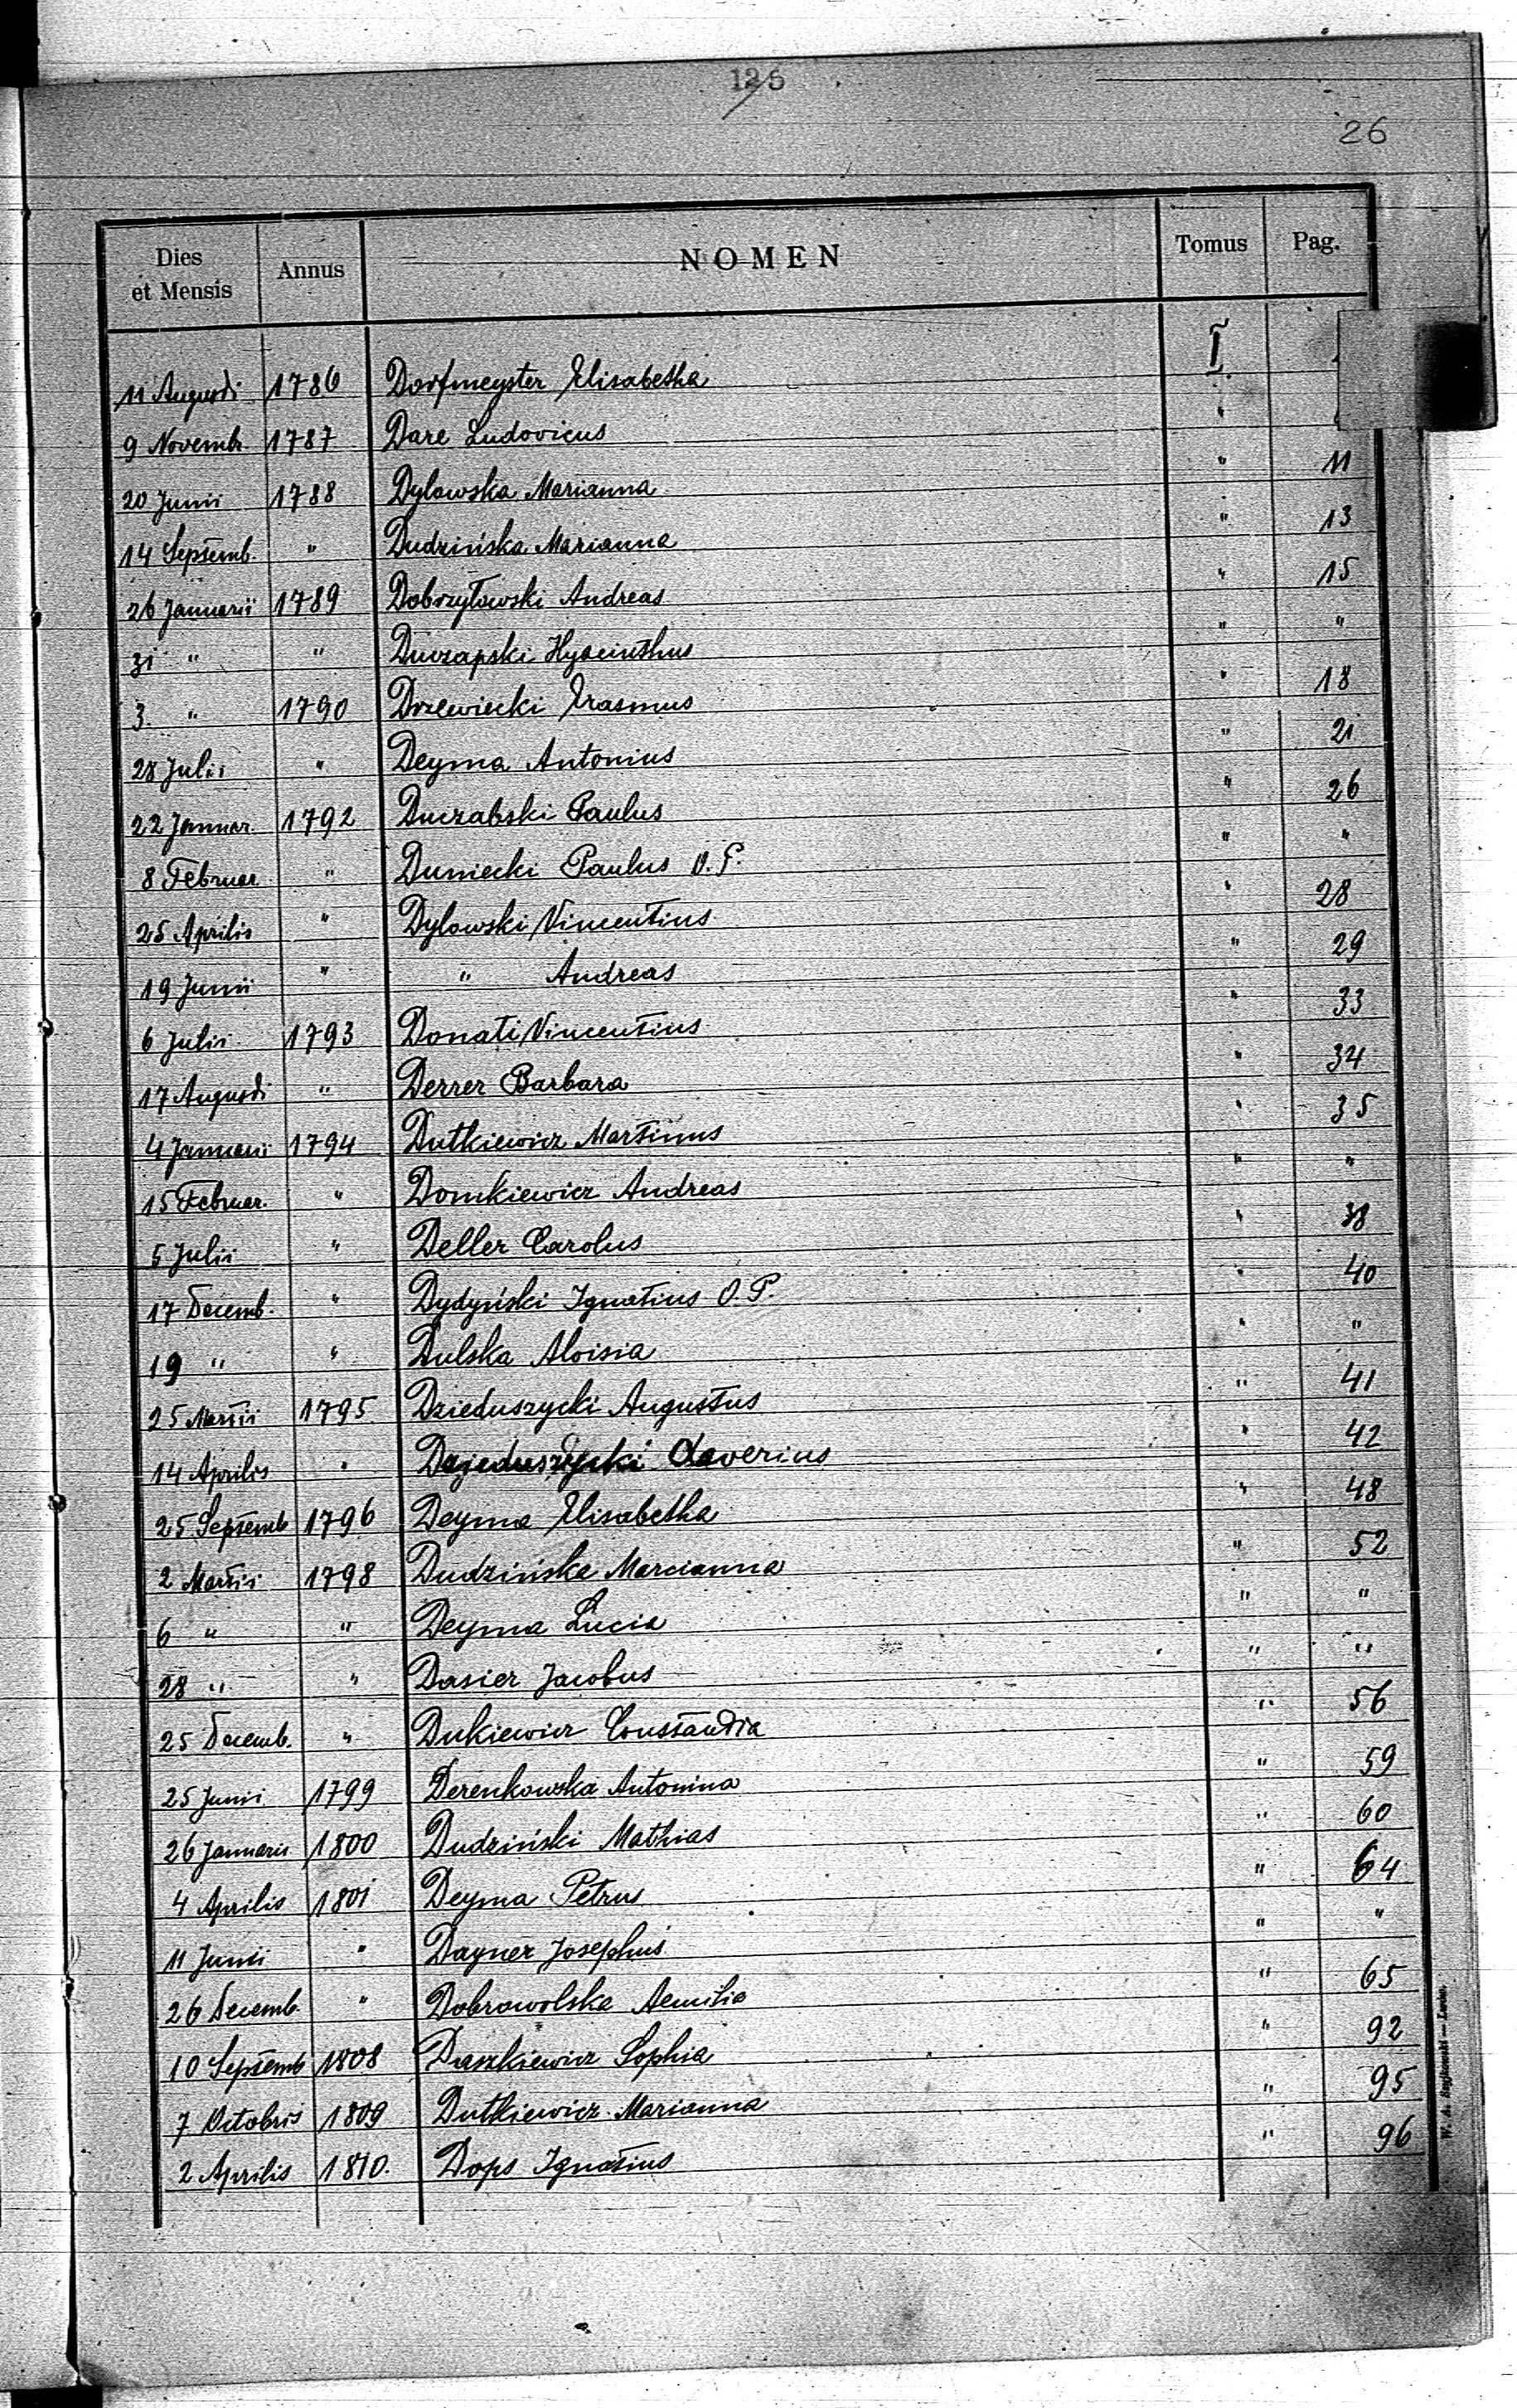 126
26
Dies et Mensis Annus NOMEN Tomus Pag.
11 Augusti 1786 Dorfmeyster Elisabetha I
9 Novembr. 1787 Dare Ludovicus "
20 Junii 1788 Dylowska Marianna " 11
14 Septemb. " Dudzińska Marianna " 13
26 Januarii 1789 Dobrzyłowski Andreas " 15
31 " " Duczapski Hyacinthus " "
3. " 1790 Drzewiecki Erasmus " 18
28 Julii " Deyma Antonius " 21
22 Januar. 1792 Duczabski Paulus " 26
8 Februar. " Duniecki Paulus O.P. " "
25 Aprilis " Dylowski Vincentius " 28
19 Junii " " Andreas " 29
6 Julii 1793 Donati Vincentius " 33
17 Augusti " Derrer Barbara " 34
4 Januarii 1794 Dutkiewicz Martinus " 35
15 Februar. " Domkiewicz Andreas " "
5 Julii " Deller Carolus " 38
17 Decemb. " Dydyński Ignatius O.P. " 40
19 " " Dulska Aloisia " "
25 Martii 1795 Dzieduszycki Augustus " 41
14 Aprilis " Dzieduszycki Xaverius " 42
25 Septemb 1796 Deyma Elisabetha " 48
2 Martii 1798 Dudzińska Marcianna " 52
6 " " Deyma Lucia " "
28 " " Dasier Jacobus " "
25 Decemb. " Dukiewicz Constantia " 56
25 Junii 1799 Derenkowska Antonina " 59
26 Januarii 1800 Dudziński Mathias " 60
4 Aprilis 1801 Deyma Petrus " 64
11 Junii " Dayner Josephus " "
26 Decemb. " Dobrowolska Aemilia " 65
10 Septemb 1808 Daszkiewicz Sophia " 92
7 Octobris 1809 Dutkiewicz Marianna " 95
2 Aprilis 1810. Dops Ignatius " 96